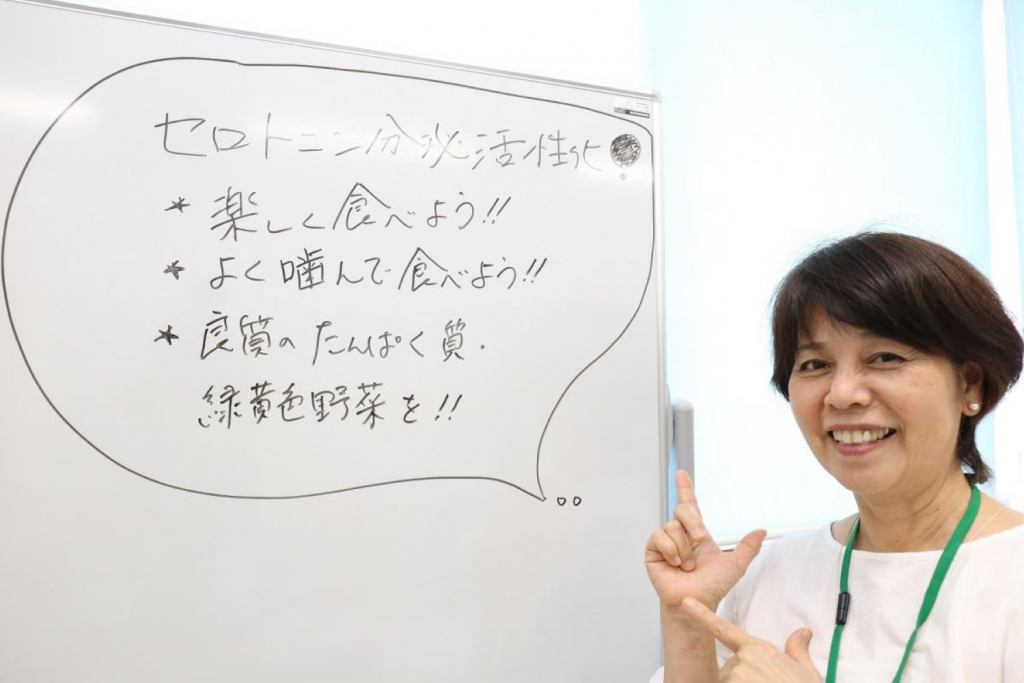 セロトニン分泌活性化
* 楽しく食べよう!!
* よく噛んで食べよう!!
* 良質のたんぱく質・
緑黄色野菜を!!